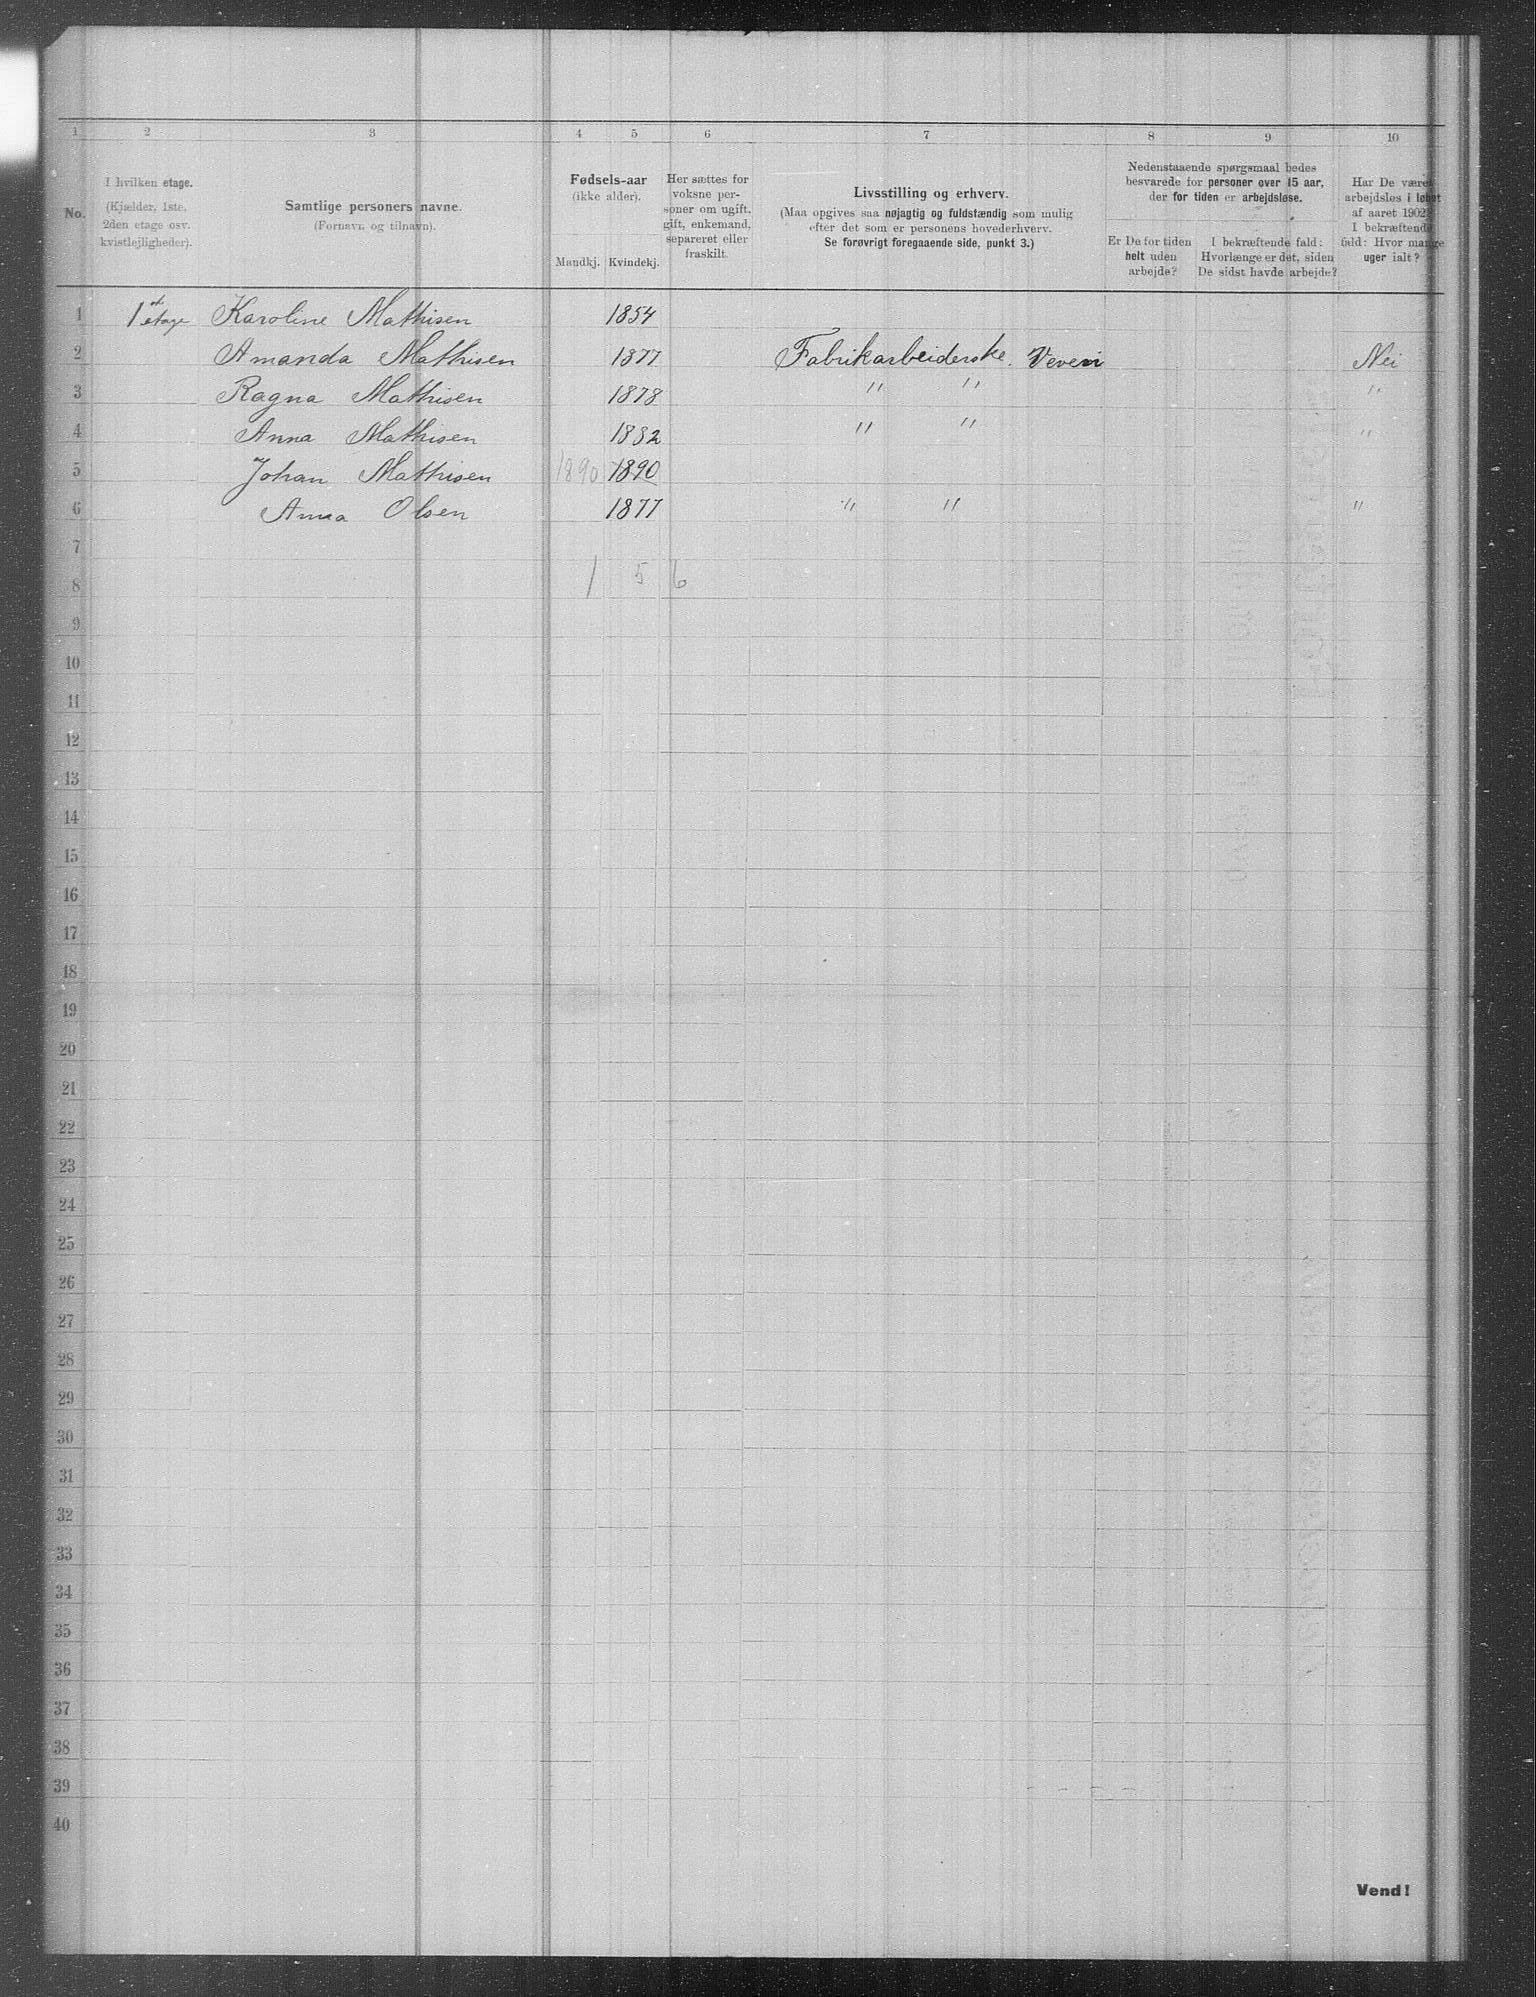 1 2 3 4 5 6 7 8 9 10
No.
I hvilken etage.
(Kjælder, 1ste,
2den etage osv.
kvistlejligheder).
Samtlige personers navne.
(Fornavn og tilnavn).
Fødsels-aar
(ikke alder).
Mandkj. Kvindekj.
Her sættes for
voksne per-
soner om ugift,
gift, enkemand,
separeret eller
fraskilt.
Livsstilling og erhverv.
(Maa opgives saa nøjagtig og fuldstændig som mulig
efter det som er personens hovederhverv.
Se forøvrigt foregaaende side, punkt 3.)
Nedenstaaende spørgsmaal bedes
besvarede for personer over 15 aar,
der for tiden er arbejdsløse.
Er De for tiden
helt uden
arbejde?
I bekræftende fald:
Hvorlænge er det, siden
De sidst havde arbejde?
Har De været
arbejdsløs i løbet
af aaret 1902?
I bekræftende
fald: Hvor mange
uger ialt?
1 1 etage Karoline Mathisen 1854
2 Amanda Mathisen 1877 Fabrikarbeiderske. Veveri Nei
3 Ragna Mathisen 1878 " " "
4 Anna Mathisen 1882 " " "
5 Johan Mathisen 1890 1890
6 Anna Olsen 1877 " " "
7
8 1 5 6
9
10
11
12
13
14
15
16
17
18
19
20
21
22
23
24
25
26
27
28
29
30
31
32
33
34
35
36
37
38
39
40
Vend!